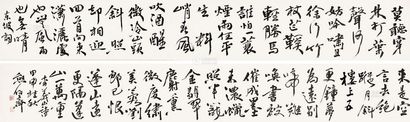 莫聽穿
林打葉
聲何妨
吟嘯且
徐行竹杖
芒鞋
輕勝馬
誰怕一蓑
煙雨任平
生料
峭春風
吹酒醒
微冷山頭
斜照
卻相迎
回首向來
瀟灑處
歸去也無風雨
也無晴
東坡詞
來是空
言去絕
蹤月斜
樓上五
更鐘夢
為遠別
啼難
喚書被
催成墨
未濃蠟
照半籠
金翡翠
麝熏
微度繡
芙蓉劉
郎已恨
蓬山遠
更隔蓬
山一萬重